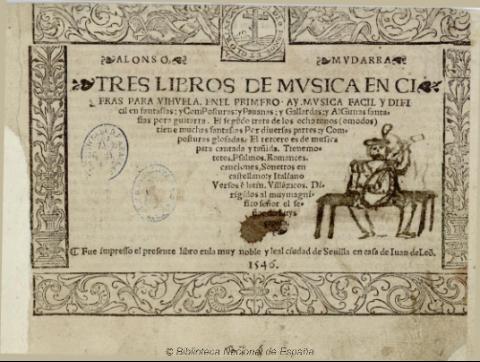 ALONSO, MVDARRA
TRES LIBROS DE MVSICA EN CI
FRAS PARA VIHVELA. ENEL PRIMERO AY MVSICA FACIL Y DIFI
cil en fantasias; y Composturas; y Pauanas; y Gallardas; y Algunas fanta-
sias pera guitarra. El segũdo trata de los ocho tonos (o modos)
tiene muchas fantasias Por diuersas partes; y Com-
posturas glosadas. El tercero es de musica
para cantada y tañida. Tiene mo-
tetes, Psalmos, Romances,
canciones, Sonetos en
castellano y Italiano
Versos ẽ latin, Villãcicos. Di-
rigidos al muy magni-
fico señor el se
ñor
Fue impresso el presente libro enla muy noble y leal ciudad de Seuilla en casa de Iuan de Leõ.
1546.
© Biblioteca Nacional de España